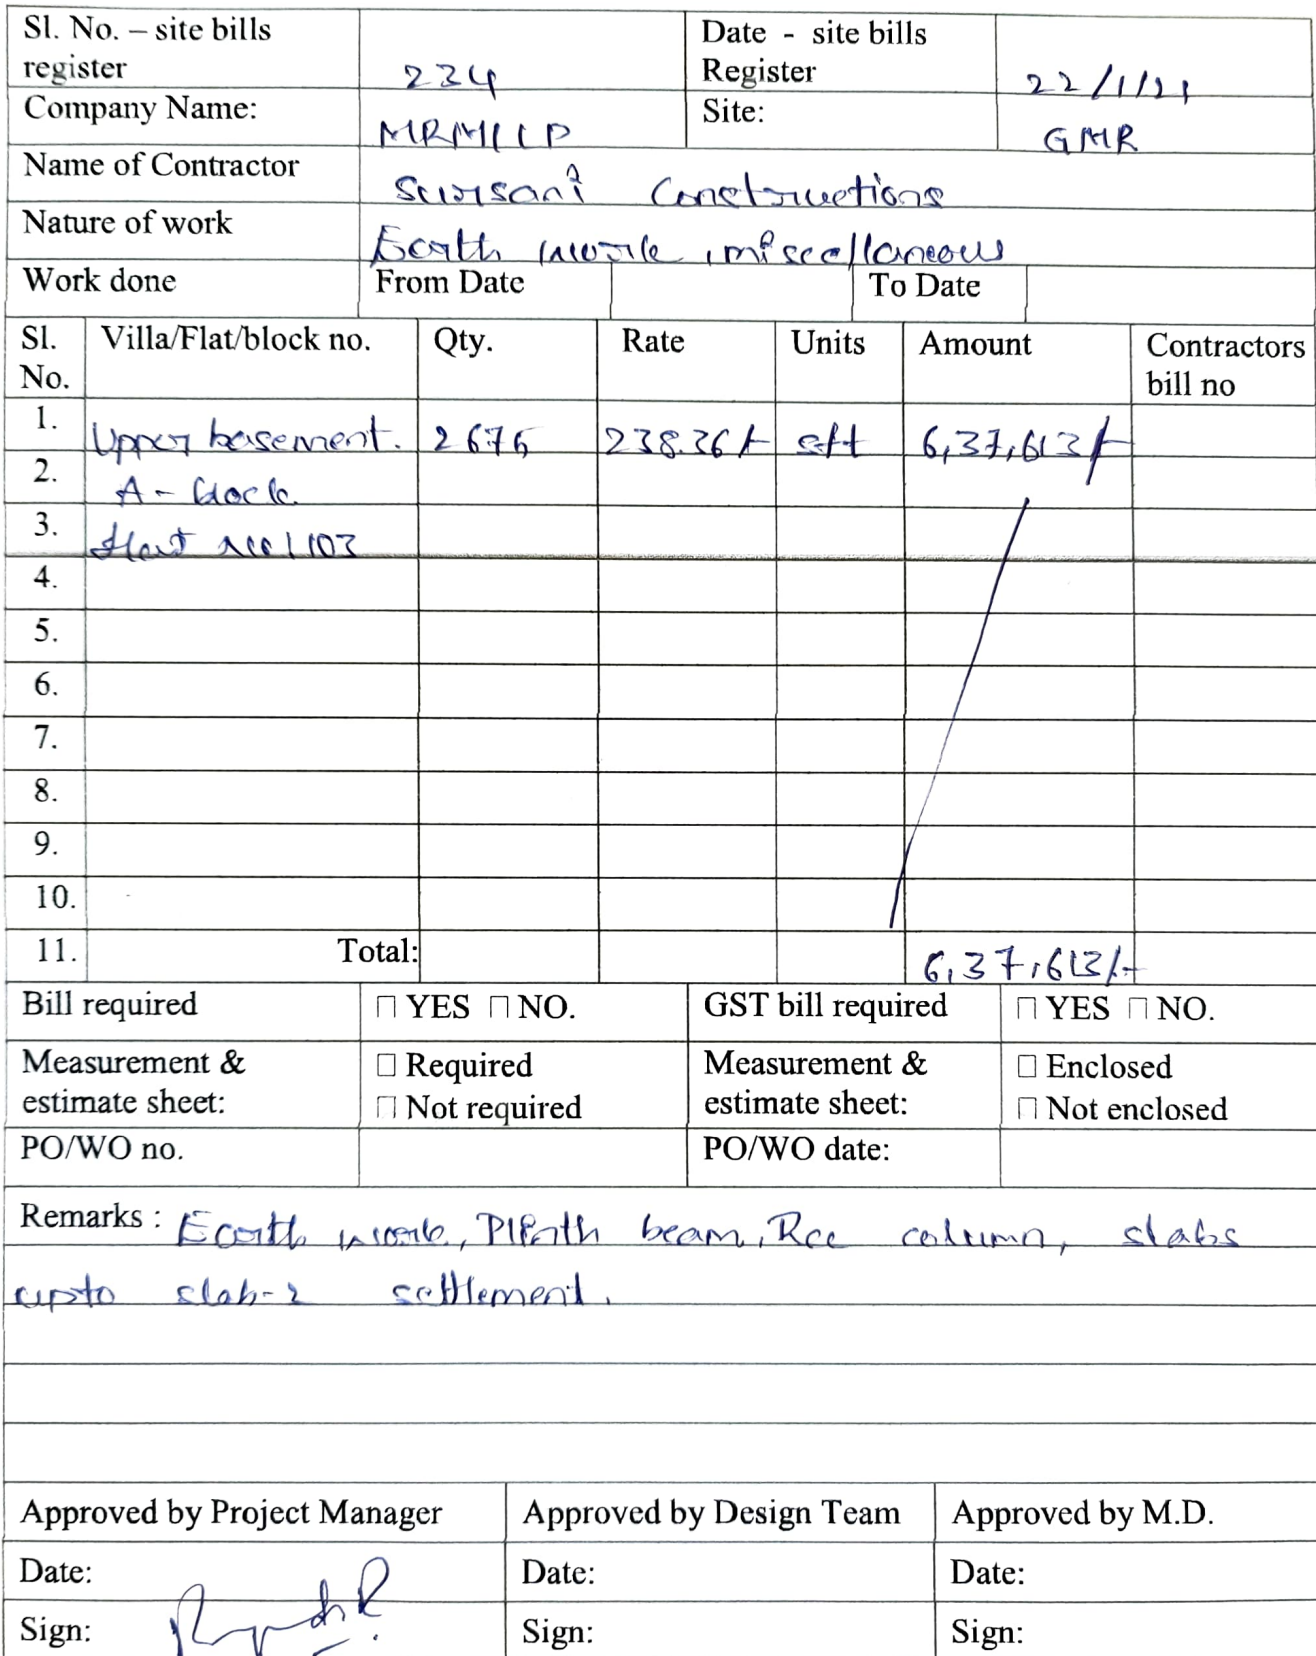 Sl. No. – site bills register 234 Date - site bills Register 22/1/21
Company Name: MRMLLP Site: GMR
Name of Contractor Sursani Constructions
Nature of work Earth work, miscellaneous
Work done From Date To Date
Sl. No. Villa/Flat/block no. Qty. Rate Units Amount Contractors bill no
1. Upper basement. 2675 238.36/- sft 6,37,613/-
2. A - block
3. flat no 1103
4.
5.
6.
7.
8.
9.
10.
11. Total: 6,37,613/-
Bill required □ YES □ NO. GST bill required □ YES □ NO.
Measurement & estimate sheet: □ Required □ Not required Measurement & estimate sheet: □ Enclosed □ Not enclosed
PO/WO no. PO/WO date:
Remarks : Earth work, Plinth beam, Rcc column, slabs
upto slab-2 settlement.
Approved by Project Manager Approved by Design Team Approved by M.D.
Date: Date: Date:
Sign: Sign: Sign: